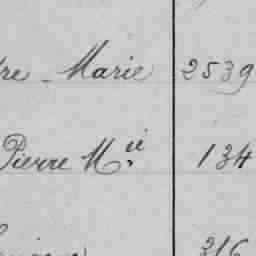 re - Marie 2539
Pierre Mie 134
316